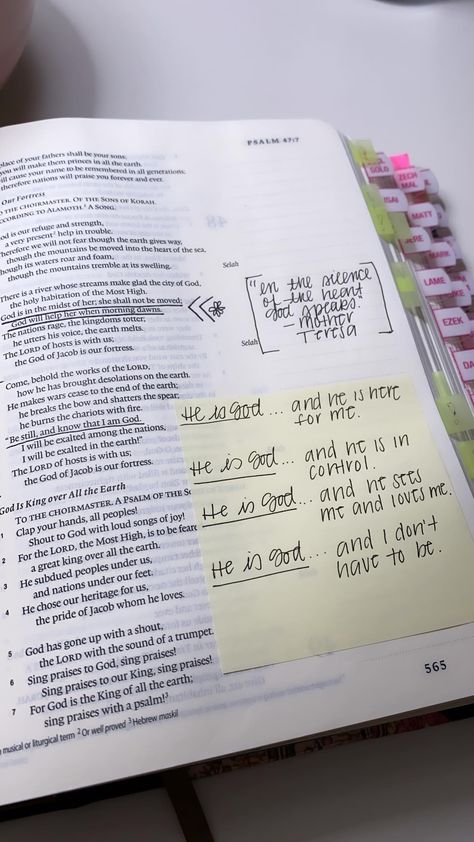 PSALM 47:7
place of your fathers shall be your sons;
you will make them princes in all the earth.
will cause your name to be remembered in all generations;
therefore nations will praise you forever and ever.
Our Fortress
TO THE CHOIRMASTER. OF THE SONS OF KORAH.
ACCORDING TO ALAMOTH.¹ A SONG.
God is our refuge and strength,
a very present² help in trouble.
Therefore we will not fear though the earth gives way,
though the mountains be moved into the heart of the sea,
though its waters roar and foam,
though the mountains tremble at its swelling.
Selah
There is a river whose streams make glad the city of God,
the holy habitation of the Most High.
God is in the midst of her; she shall not be moved;
God will help her when morning dawns.
The nations rage, the kingdoms totter;
he utters his voice, the earth melts.
The LORD of hosts is with us;
the God of Jacob is our fortress.
Selah
"in the silence
of the heart
God speaks."
- Mother
Teresa
Come, behold the works of the LORD,
how he has brought desolations on the earth.
He makes wars cease to the end of the earth;
he breaks the bow and shatters the spear;
he burns the chariots with fire.
"Be still, and know that I am God.
I will be exalted among the nations,
I will be exalted in the earth!"
The LORD of hosts is with us;
the God of Jacob is our fortress.
He is God... and he is here
for me.
He is God... and he is in
control.
He is God... and he sees
me and loves me.
He is God... and I don't
have to be.
God Is King over All the Earth
TO THE CHOIRMASTER. A PSALM OF THE SO
1 Clap your hands, all peoples!
Shout to God with loud songs of joy!
2 For the LORD, the Most High, is to be feare
a great king over all the earth.
3 He subdued peoples under us,
and nations under our feet.
4 He chose our heritage for us,
the pride of Jacob whom he loves.
5 God has gone up with a shout,
the LORD with the sound of a trumpet.
6 Sing praises to God, sing praises!
Sing praises to our King, sing praises!
7 For God is the King of all the earth;
sing praises with a psalm!³
musical or liturgical term ² Or well proved ³ Hebrew maskil
565
SOLO
ISAI
JE
LAME
EZEK
ZECH
MAL
MATT
MARK
LUKE